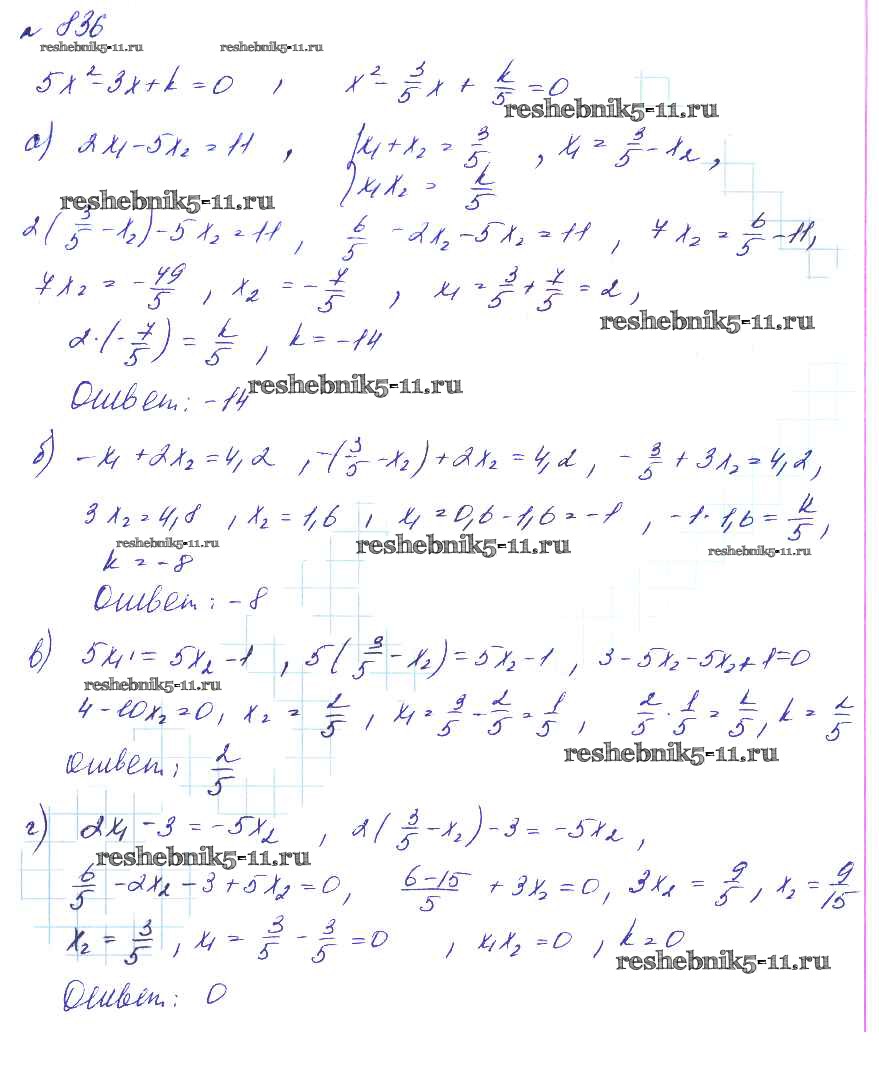 № 836
reshebnik5-11.ru reshebnik5-11.ru
5x² - 3x + k = 0 , x² - 3/5 x + k/5 = 0
reshebnik5-11.ru
а) 2x₁ - 5x₂ = 11 , { x₁ + x₂ = 3/5 , x₁ = 3/5 - x₂ ,
x₁x₂ = k/5
reshebnik5-11.ru
2(3/5 - x₂) - 5x₂ = 11 , 6/5 - 2x₂ - 5x₂ = 11 , 7x₂ = 6/5 - 11,
7x₂ = - 49/5 , x₂ = - 7/5 , x₁ = 3/5 + 7/5 = 2 ,
reshebnik5-11.ru
2·(- 7/5) = k/5 , k = -14
reshebnik5-11.ru
Ответ: -14
б) -x₁ + 2x₂ = 4,2 , -(3/5 - x₂) + 2x₂ = 4,2 , - 3/5 + 3x₂ = 4,2 ,
3x₂ = 4,8 , x₂ = 1,6 , x₁ = 0,6 - 1,6 = -1 , -1·1,6 = k/5 ,
reshebnik5-11.ru reshebnik5-11.ru reshebnik5-11.ru
k = -8
Ответ: -8
в) 5x₁ = 5x₂ - 1 , 5(3/5 - x₂) = 5x₂ - 1 , 3 - 5x₂ - 5x₂ + 1 = 0
reshebnik5-11.ru
4 - 10x₂ = 0, x₂ = 2/5 , x₁ = 3/5 - 2/5 = 1/5 , 2/5 · 1/5 = k/5 , k = 2/5
reshebnik5-11.ru
Ответ: 2/5
г) 2x₁ - 3 = -5x₂ , 2(3/5 - x₂) - 3 = -5x₂ ,
reshebnik5-11.ru
6/5 - 2x₂ - 3 + 5x₂ = 0, 6-15/5 + 3x₂ = 0, 3x₂ = 9/5 , x₂ = 9/15
x₂ = 3/5 , x₁ = 3/5 - 3/5 = 0 , x₁x₂ = 0 , k = 0
reshebnik5-11.ru
Ответ: 0